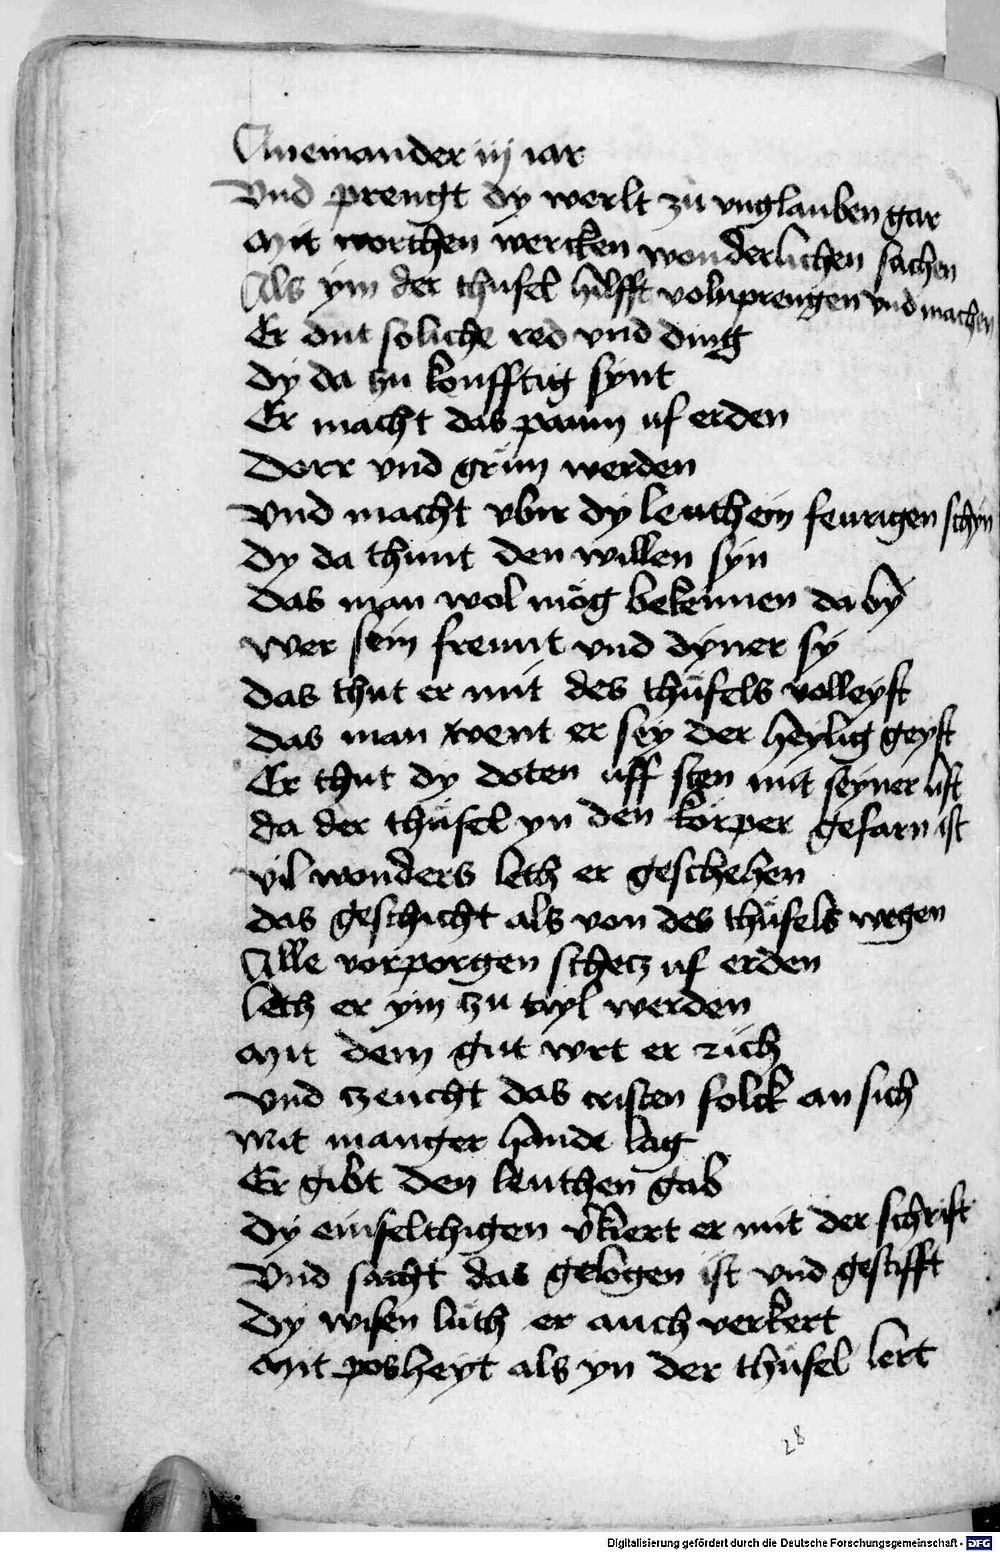 Aneinander iij iar
Vnd prengt dy werlt zu vnglauben gar
Mit worthen wercken wonderlichen sachen
Als ym der thufel hilfft volnprengen vnd machen
Er dut soliche red vnd ding
Dy da zu konfftig synt
Er macht das paum uf erden
Dorr vnd grün werden
Vnd macht vbir dy leuth ein feurigen schyn
Dy da thunt den willen syn
Das man wol mög bekennen da by
Wer sein freunt vnd dyner sy
Das thut er mit des thüfels volleyst
Das man went er sey der heylig geyst
Er thut dy doten uff sten mit seyner list
da der thüfel yn den körper gefarn ist
vil wonders leth er geschehen
das geschicht als von des thüfels wegen
Alle vorporgen schetz uf erden
leth er ym zu teyl werden
Mit dem gut wrt er rich
Vnd zeucht das cristen folck an sich
Mit manger hande lag
Er gibt den leuthen gab
Dy einfelthigen v̄kert er mit der schrift
Vnd sacht das gelogen ist vnd gestifft
Dy wisen lüth er auch verkert
Mit posheyt als yn der thüfel lert
28
Digitalisierung gefördert durch die Deutsche Forschungsgemeinschaft - DFG